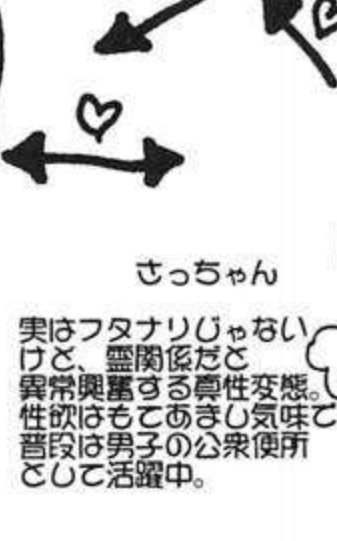 さっちゃん
実はフタナリじゃない
けど、霊関係だと
異常興奮する真性変態。
性欲はもてあまし気味で
普段は男子の公衆便所
として活躍中。